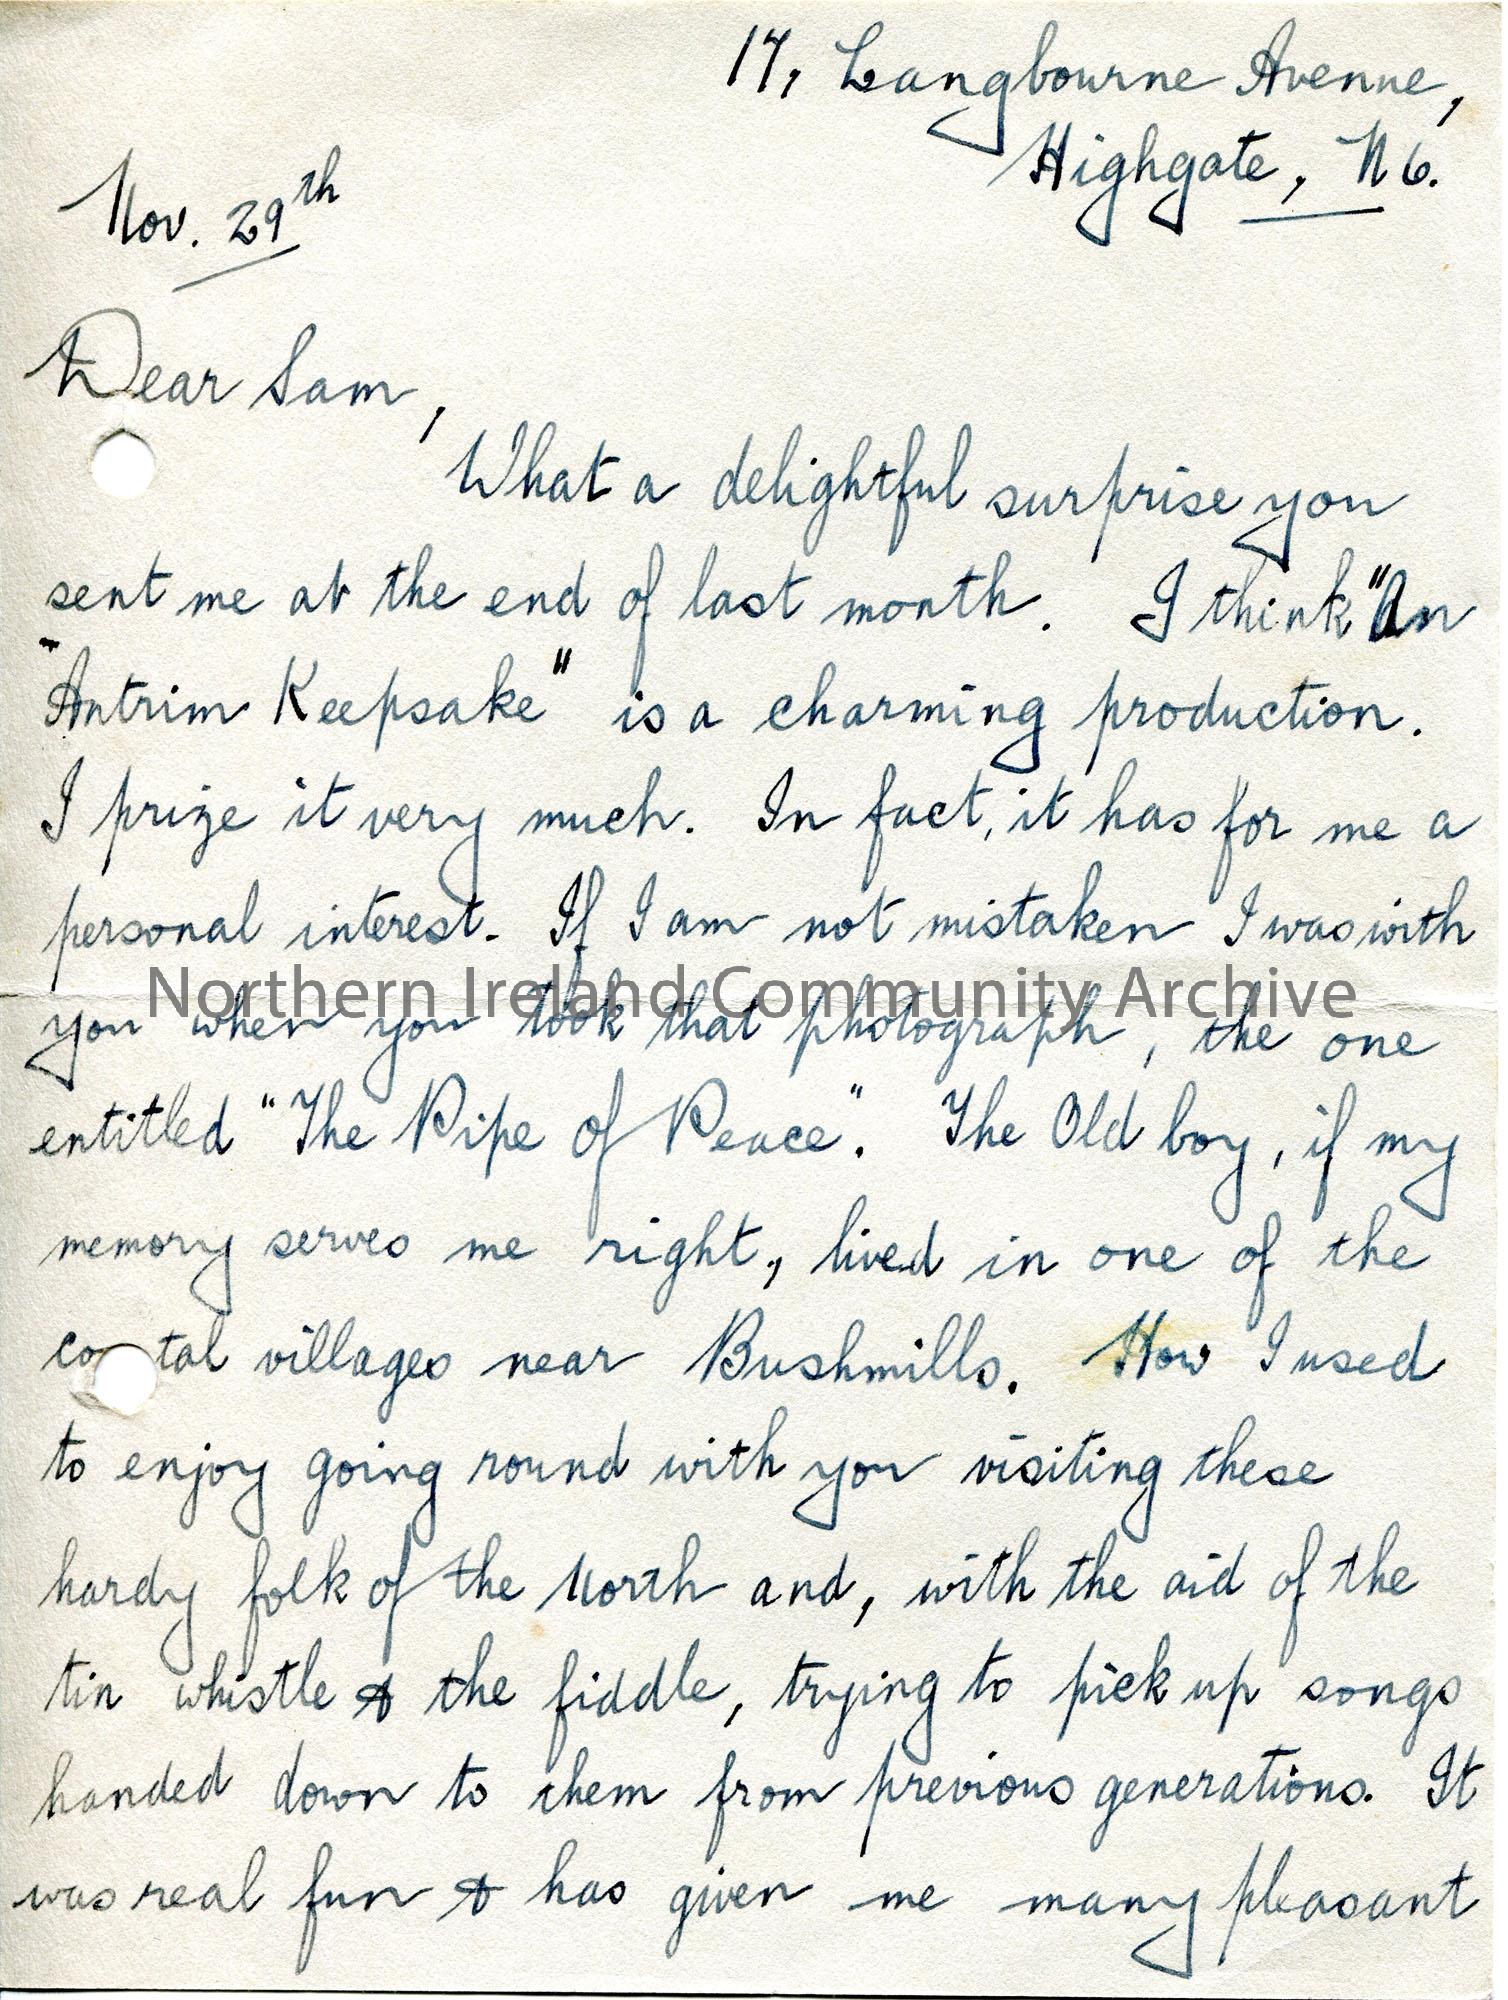 17, Langbourne Avenue,
Highgate, N6.
Nov. 29th
Dear Sam,
What a delightful surprise you
sent me at the end of last month. I think "An
"Antrim Keepsake" is a charming production.
I prize it very much. In fact, it has for me a
personal interest. If I am not mistaken I was with
Northern Ireland Community Archive
you when you took that photograph, the one
entitled "The Pipe of Peace". The Old boy, if my
memory serves me right, lived in one of the
co tal villages near Bushmills. How I used
to enjoy going round with you visiting these
hardy folk of the North and, with the aid of the
tin whistle & the fiddle, trying to pick up songs
handed down to them from previous generations. It
was real fun & has given me many pleasant